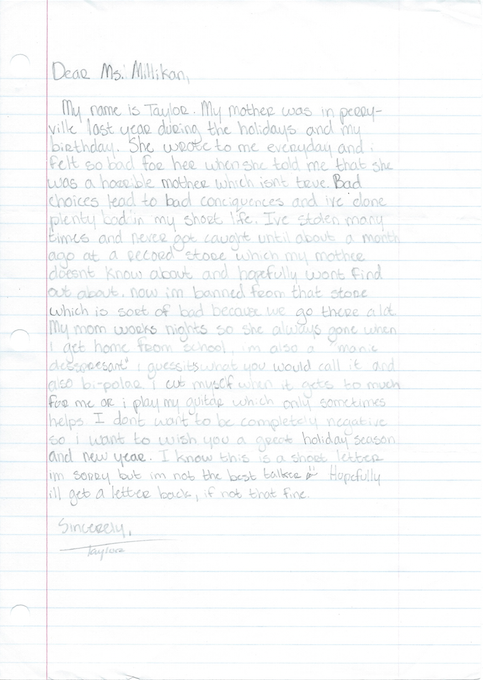 Dear Ms. Millikan,
My name is Taylor. My mother was in perry-
ville last year during the holidays and my
birthday. She wrote to me everyday and i
felt so bad for her when she told me that she
was a horrible mother which isnt true. Bad
choices lead to bad conciquences and ive done
plenty bad in my short life. I've stolen many
times and never got caught until about a month
ago at a record store which my mother
doesnt know about and hopefully wont find
out about. now im banned from that store
which is sort of bad because we go there alot
My mom works nights so she always gone when
I get home from school. im also a "manic
i guess its what you would call it and
also bi-polar i cut myself when it gets to much
for me or i play my guitar which only sometimes
helps I dont want to be completely negative
so i want to wish you a great holiday season
and new year. I know this is a short letter
im sorry but im not the best talker Hopefully
ill get a letter back, if not that fine.
Sincerely,
Taylor